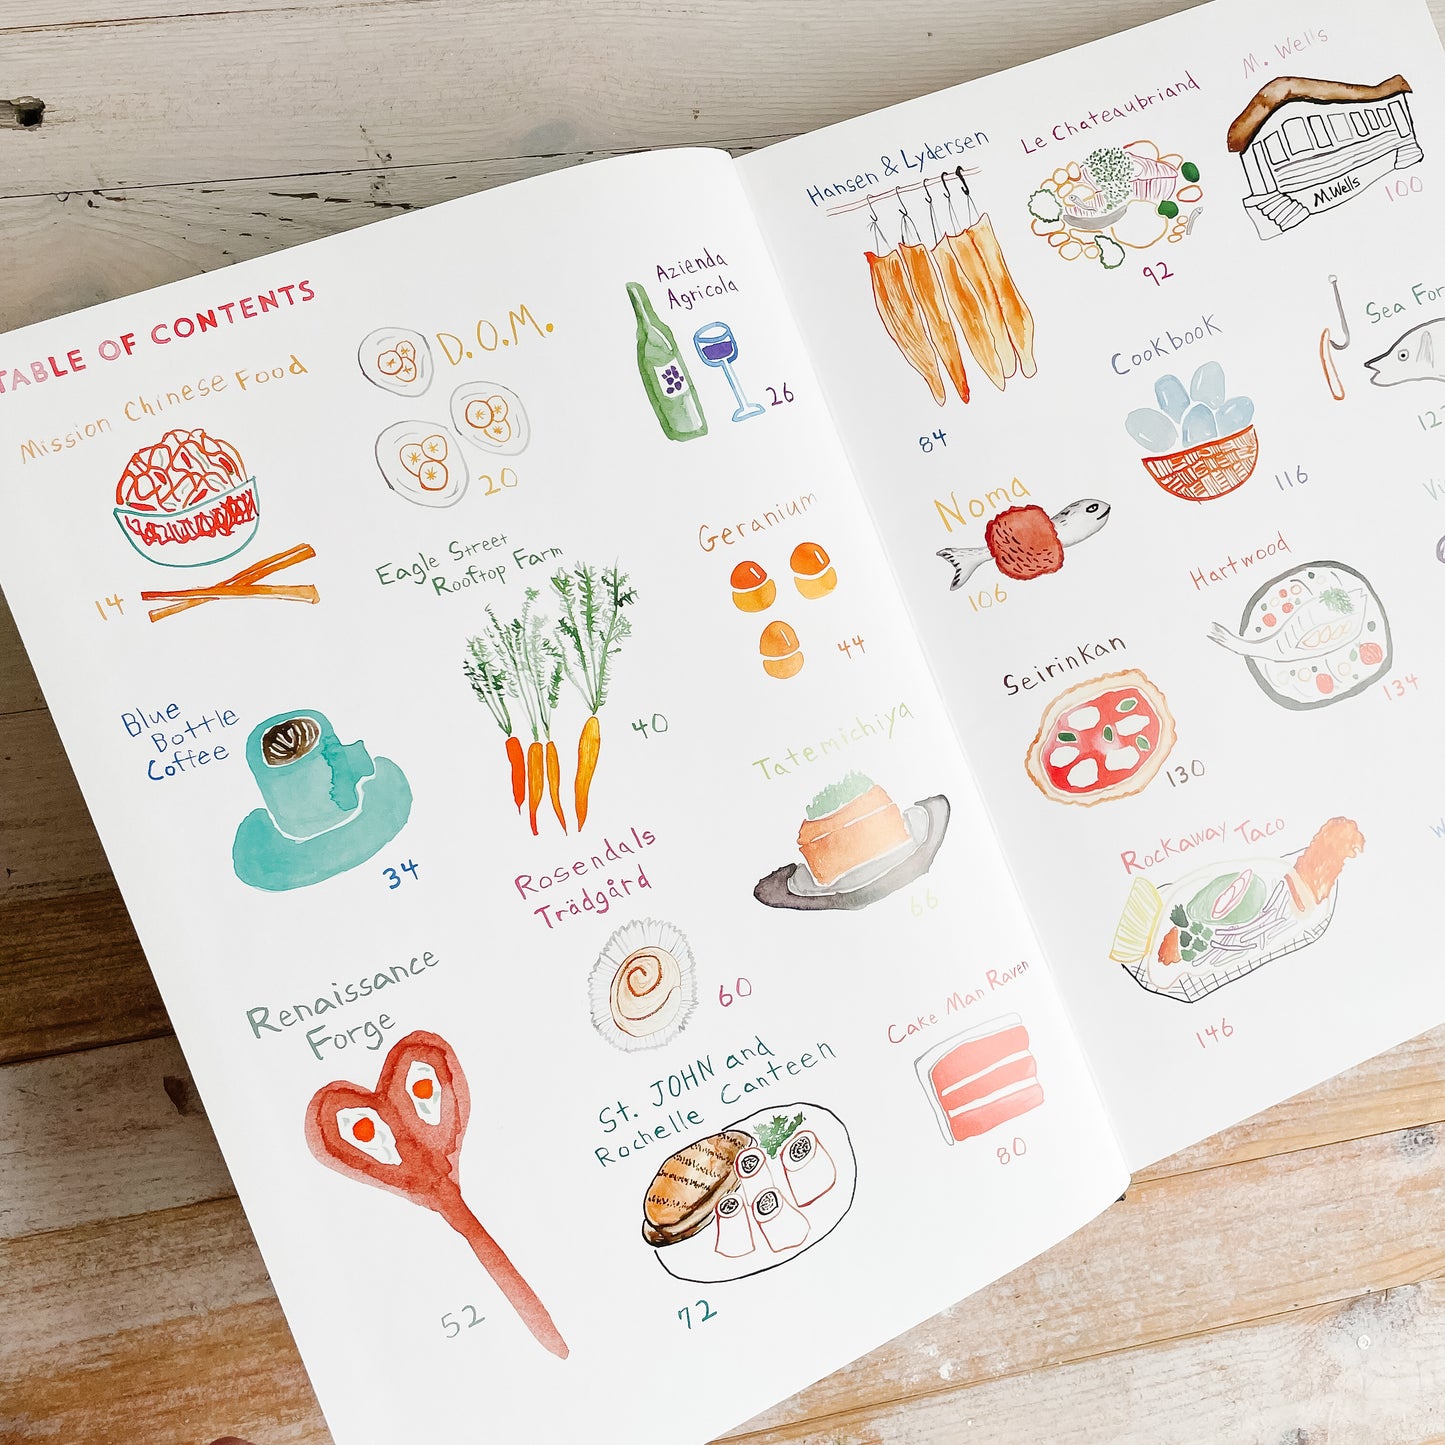 TABLE OF CONTENTS
Mission Chinese Food
14
D.O.M.
20
Azienda
Agricola
26
Blue
Bottle
Coffee
34
Eagle Street
Rooftop Farm
40
Geranium
44
Renaissance
Forge
52
Rosendals
Trädgård
60
Tatemichiya
66
St. JOHN and
Rochelle Canteen
72
Cake Man Raven
80
Hansen & Lydersen
84
Le Chateaubriand
92
M. Wells
M.Wells
100
Noma
106
Cookbook
116
Sea For
Seirinkan
130
Hartwood
134
Rockaway Taco
146